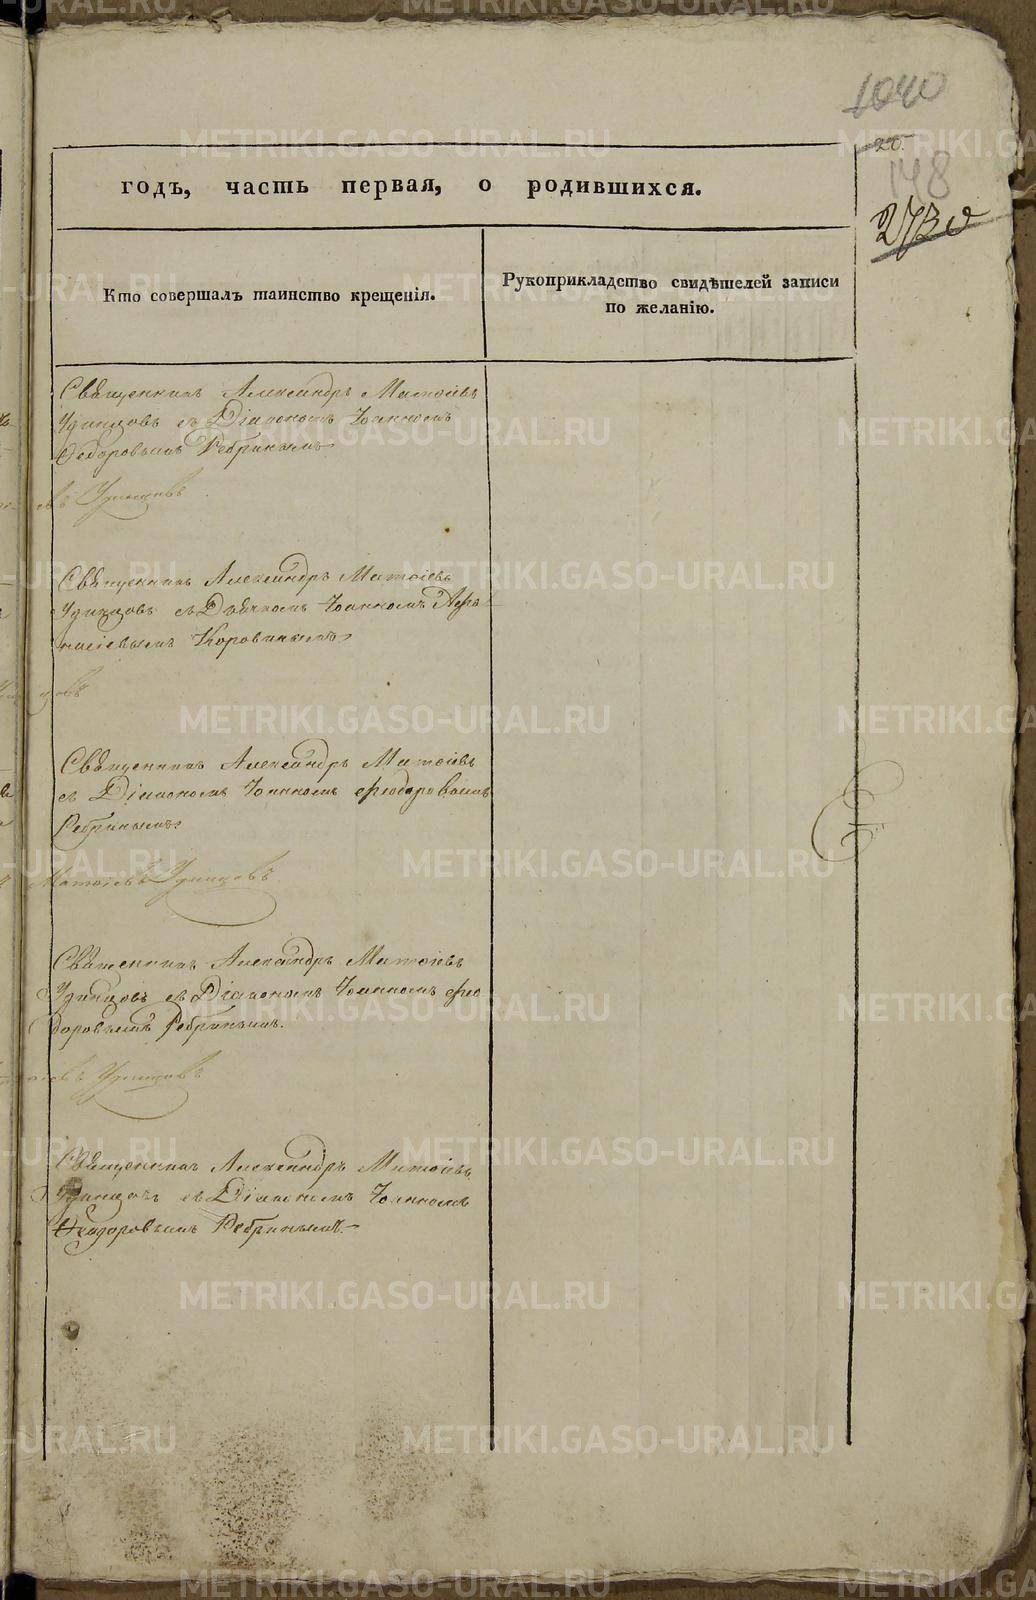 1040
20.
148
273 о
годъ, часть первая, о родившихся.
Кто совершалъ таинство крещенія.
Рукоприкладство свидѣтелей записи
по желанію.
Священникъ Александръ Матѳіевъ
Удинцовъ съ Діакономъ Іоанномъ
Ѳедоровымъ Ребринымъ
евъ Удинцовъ
Священникъ Александръ Матѳіевъ
Удинцовъ съ Дьячкомъ Іоанномъ Афа-
насіевымъ Коровинымъ
Священникъ Александръ Матѳіевъ
съ Діакономъ Іоанномъ Фіодоровымъ
Ребринымъ
Матѳіевъ Удинцовъ
Священникъ Александръ Матѳіевъ
Удинцовъ съ Діакономъ Іоанномъ Фео-
доровымъ Ребринымъ.
евъ Удинцовъ
Священникъ Александръ Матѳіевъ
Удинцовъ съ Діакономъ Іоанномъ
Ѳеодоровымъ Ребринымъ
METRIKI.GASO-URAL.RU